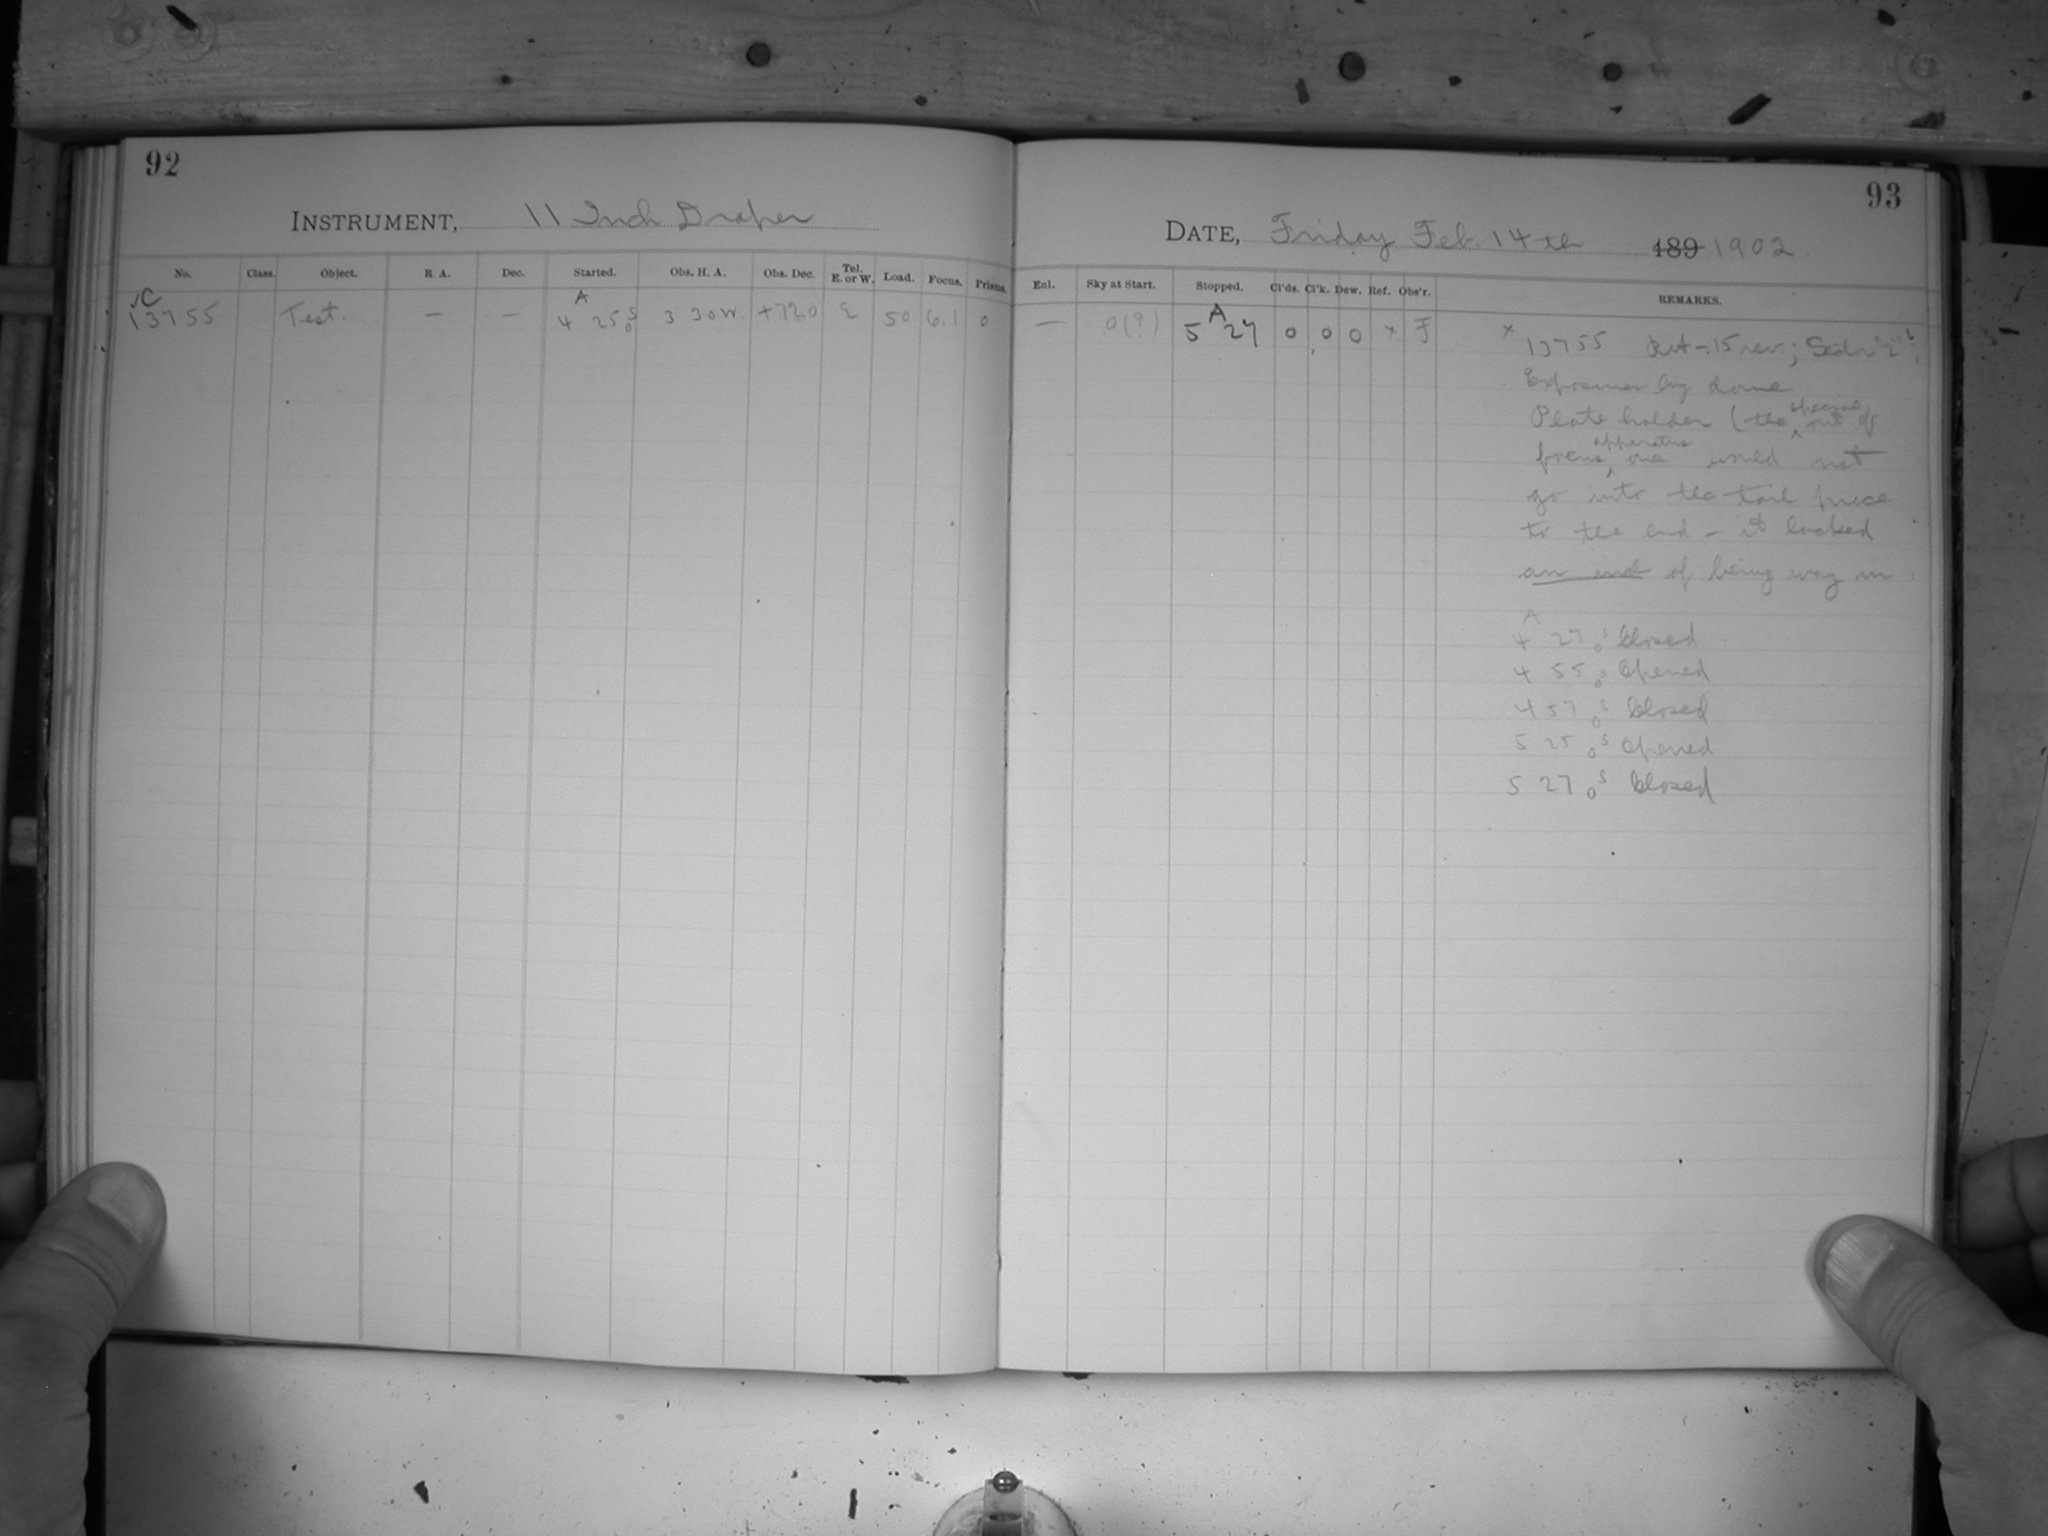 92
INSTRUMENT, 11 Inch Draper
No. Class. Object. R. A. Dec. Started. Obs. H. A. Obs. Dec. Tel. E. or W. Load. Focus. Prisms.
√C
A
13755 Test. — — 4 25 0s 3 30 W. +72.0 E 50 6.1 0
93
DATE, Friday Feb. 14th 189 1902.
Enl. Sky at Start. Stopped. Cl'ds. Cl'k. Dew. Ref. Obs'r. REMARKS.
A
— 0(?) 5 27 0 0 0 x F
x 13755 -.15 rev.;
Exposures by dome
Plate holder (the special out of
focus apparatus one would not
go into the tail piece
to the end - it lacked
of being way in.
A
4 27 0s Closed
4 55 0s Opened
4 57 0s Closed
5 25 0s Opened
5 27 0s Closed